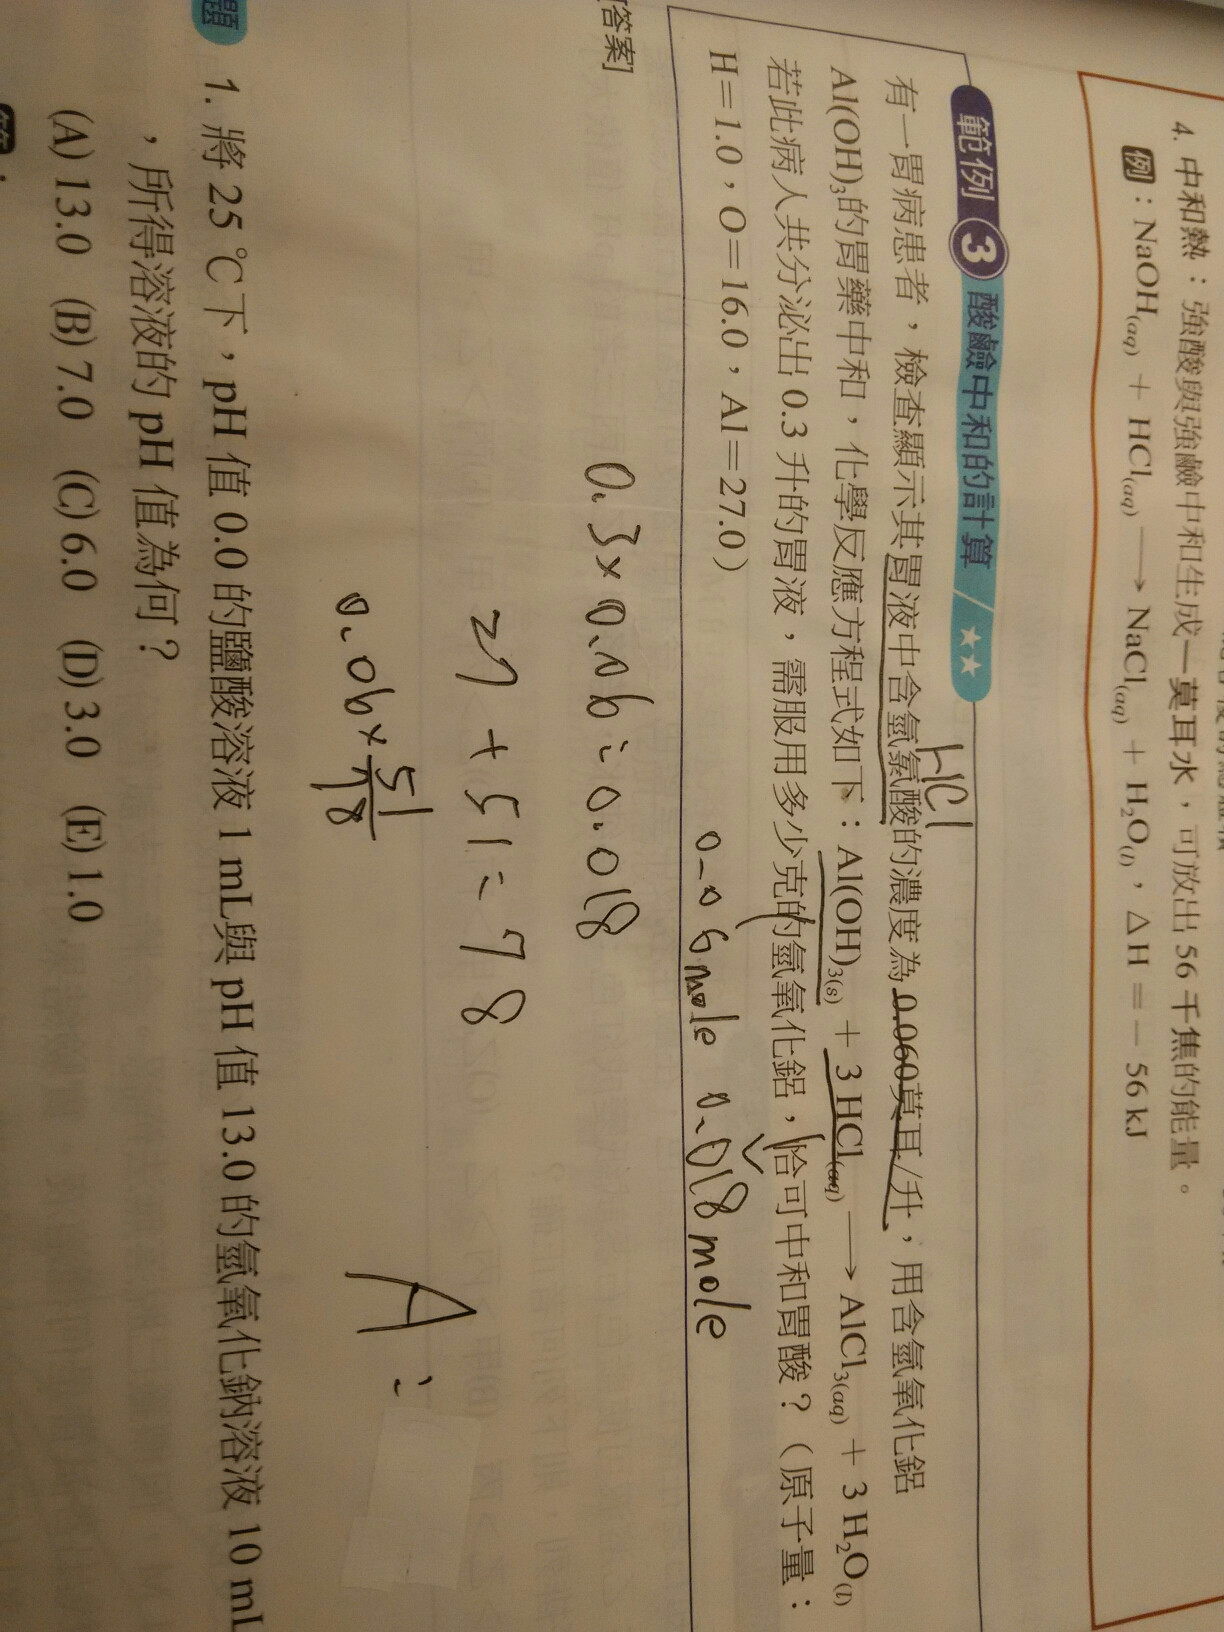 4. 中和熱：強酸與強鹼中和生成一莫耳水，可放出 56 千焦的能量。
例：NaOH(aq) + HCl(aq) ⟶ NaCl(aq) + H₂O(l)，ΔH = − 56 kJ
範例 3 酸鹼中和的計算 ★★
HCl
有一胃病患者，檢查顯示其胃液中含氫氯酸的濃度為 0.060莫耳/升，用含氫氧化鋁
Al(OH)₃的胃藥中和，化學反應方程式如下：Al(OH)₃(s) + 3 HCl(aq) ⟶ AlCl₃(aq) + 3 H₂O(l)
若此病人共分泌出 0.3 升的胃液，需服用多少克的氫氧化鋁，恰可中和胃酸？（原子量：
H=1.0，O=16.0，Al=27.0）
0.018 mole
答案]
0.3×0.06=0.018
27+51=78
0.06×
A:
題 1. 將 25 ℃下，pH 值 0.0 的鹽酸溶液 1 mL與 pH 值 13.0 的氫氧化鈉溶液 10 mL
，所得溶液的 pH 值為何？
(A) 13.0 (B) 7.0 (C) 6.0 (D) 3.0 (E) 1.0